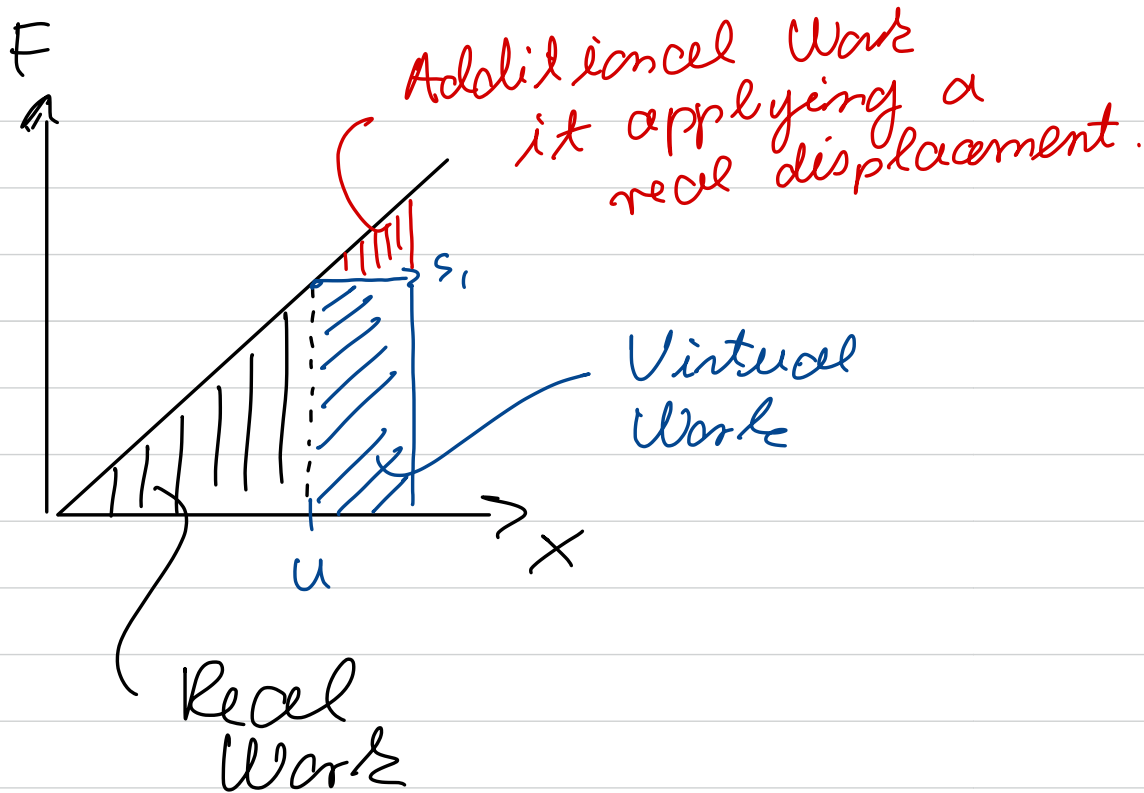 F
Additional Work
it applying a
real displacement.
S₁
Virtual
Work
X
u
Real
Work